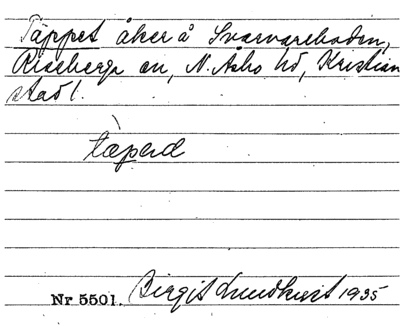 Täppet åker å Svarvareboden,
Riseberga sn, N. Åsbo hd, Kristian
stad l.
tàpəd
Nr 5501. Birgit Lundkvist 1935